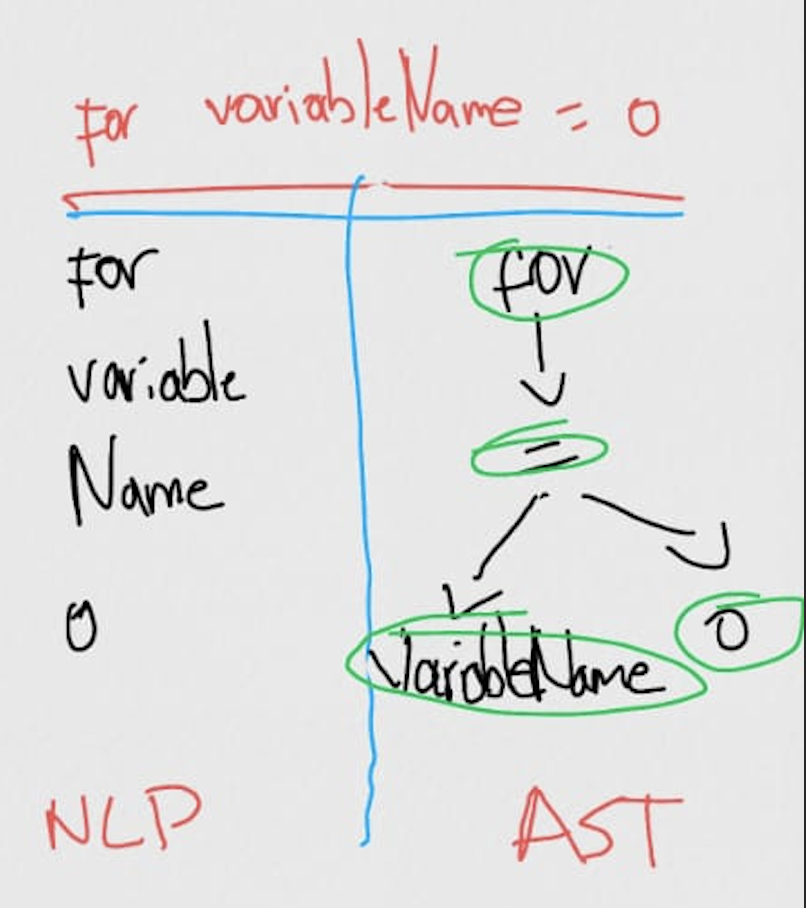 for variableName = 0
for
variable
Name
0
for
=
variableName
0
NLP
AST